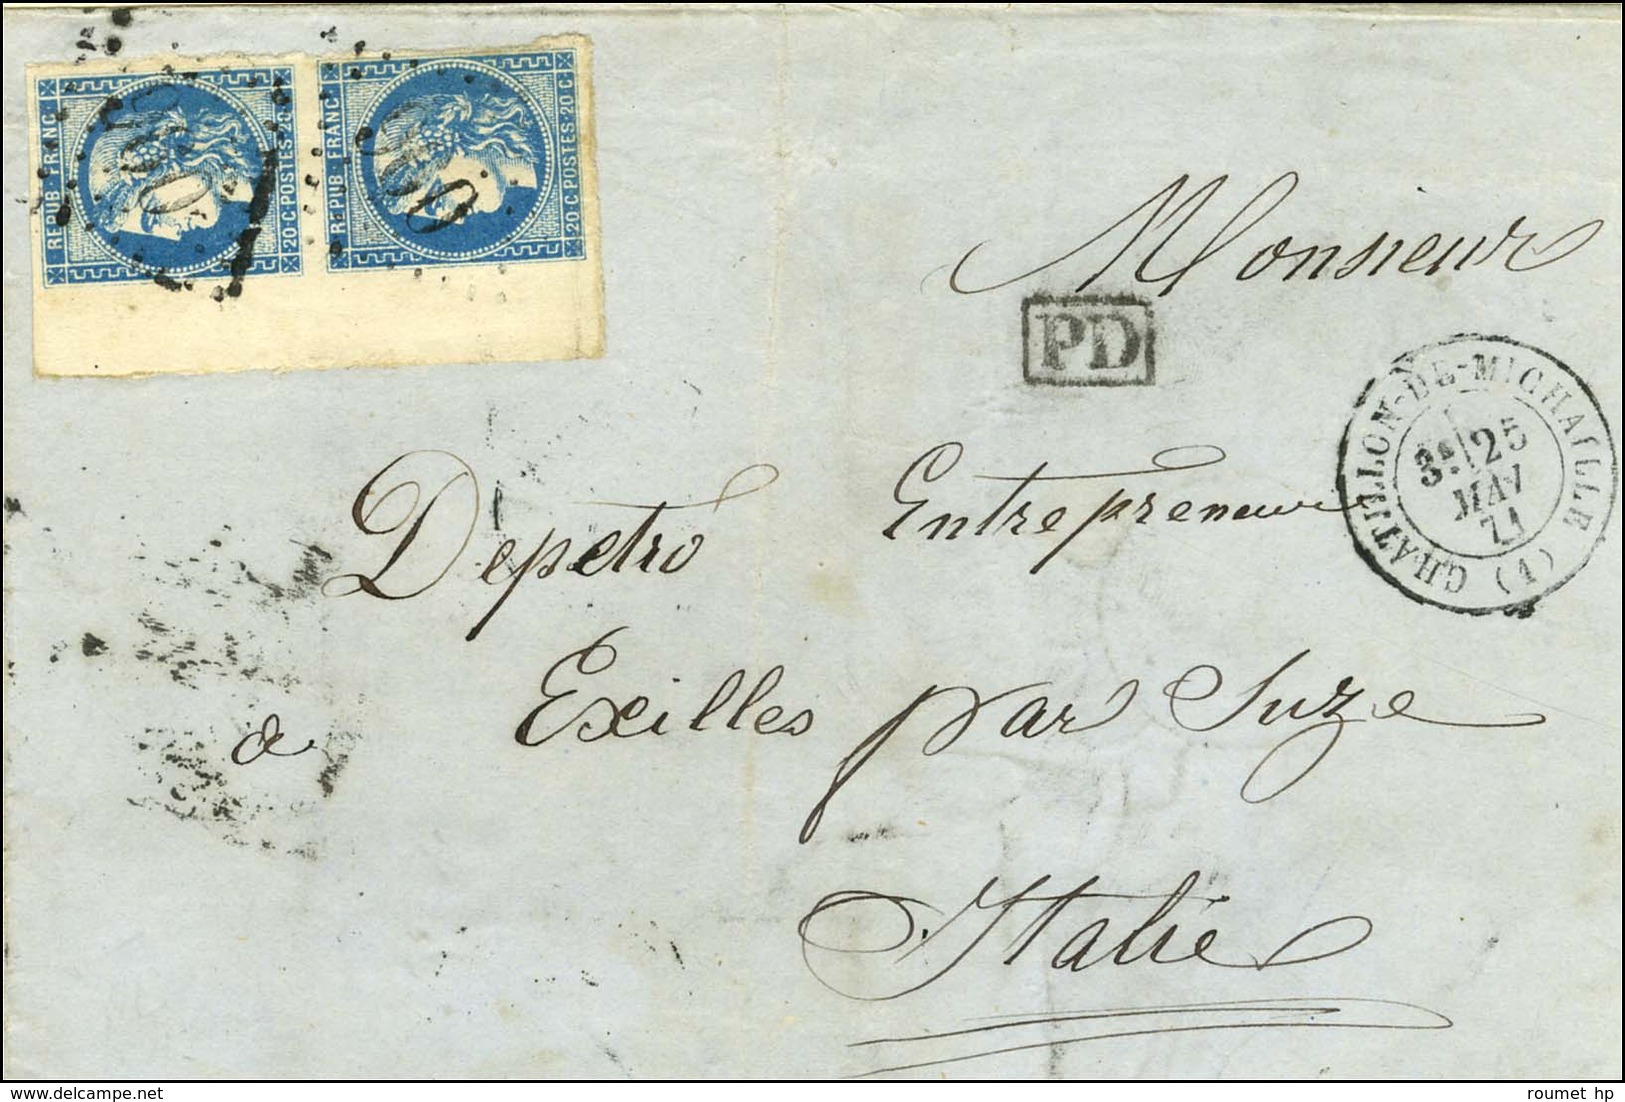 REPUB·FRANC
20·C·POSTES·20·C
960
REPUB·FRANC
20·C·POSTES·20·C
960
Monsieur
PD
CHATILLON-DE-MICHAILLE (1)
3E 25
MAI
71
Depetro Entrepreneur
à Exilles par Suze
Italie
roumet hp